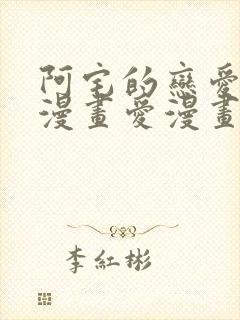 阿宅的戀愛
漫畫愛漫畫
李紅彬